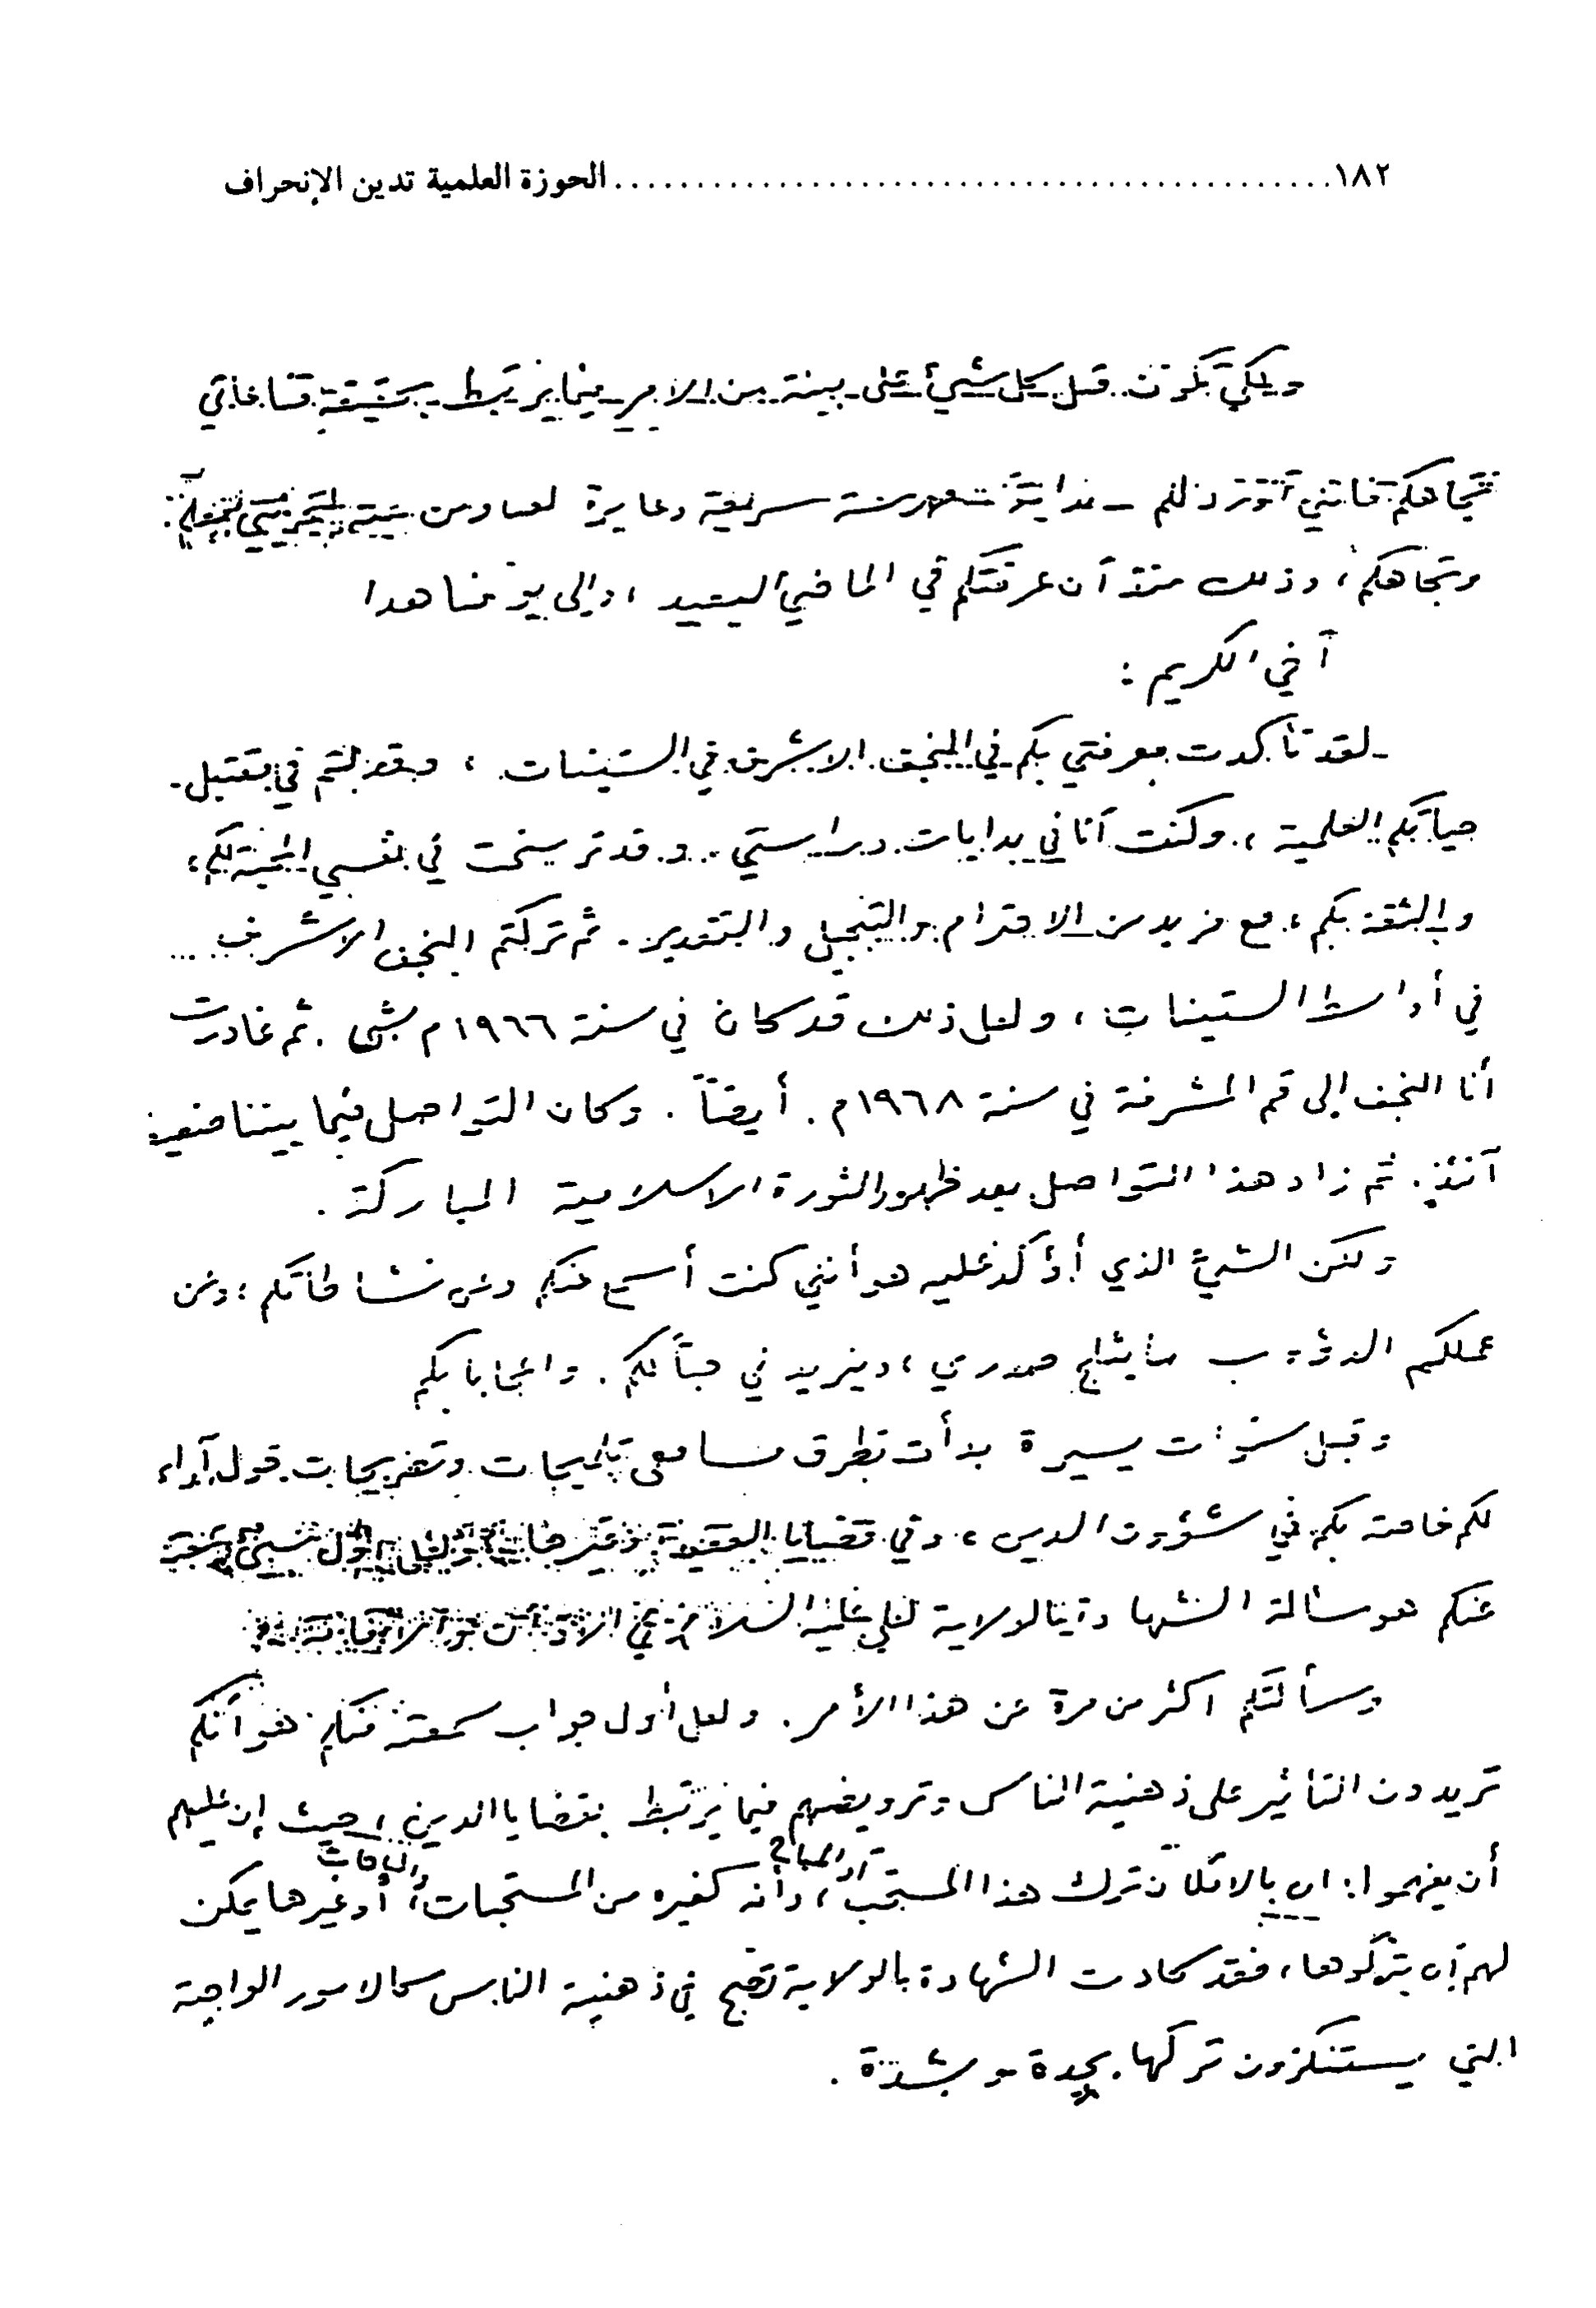 ١٨٢ ........................................ الحوزة العلمية تدين الإنحراف
ولكي تكون قبل كل شيء على بينة من الامر فيما يرتبط بحقيقة قناعاتي
تجاهكم فانني أذكر لكم ـ سريعة وعابرة لمسار
وتجاهكم، وذلك منذ أن عرفتكم في الماضي البعيد، والى يومنا هذا
أخي الكريم :
ـ لقد تأكدت معرفتي بكم في النجف الاشرف في الستينات، وقد كنتم في مقتبل
حياتكم العلمية، وكنت أنا في بدايات دراستي. وقد ترسخت في نفسي المحبة لكم،
والثقة بكم، مع مزيد من الاحترام والتبجيل والتقدير. ثم تركتم النجف الاشرف ...
في أواسط الستينات، ولعل ذلك قد كان في سنة ١٩٦٦م . ثم غادرت
أنا النجف إلى قم المشرفة في سنة ١٩٦٨م. أيضاً. وكان التواصل فيما بيننا ضعيفاً
آنئذٍ. ثم زاد هذا التواصل بعد ظهور الثورة الاسلامية المباركة .
ولكن الشيء الذي أؤكد عليه هو أنني كنت أسمع عنكم وعن نشاطاتكم؛ وعن
عملكم الدؤوب ما يثلج صدري، ويزيدني حباً لكم. واعجابا بكم
وقبل سنوات يسيرة بدأت تطرق مسامعي تلميحات وتصريحات حول آراء
لكم خاصة بكم في شؤون الدين، وفي قضايا العقيدة وغيرها، ولعل اول شيء سمعته
عنكم هو مسألة الشهادة بالولاية لعلي عليه السلام في الاذان والاقامة
وسألتكم اكثر من مرة عن هذا الأمر. ولعل أول جواب سمعته منكم هو أنكم
تريدون التأثير على ذهنية الناس وترويضهم فيما يرتبط بقضايا الدين، حيث إن عليهم
أو المباح والمباحات
أن يفهموا: ان بالامكان ترك هذا المستحب، وأنه كغيره من المستحبات، أو غيرها يمكن
لهم أن يتركوها، فقد كادت الشهادة بالولاية تصبح في ذهنية الناس كالامور الواجبة
التي يستنكرون تركها. بحدة وبشدة .